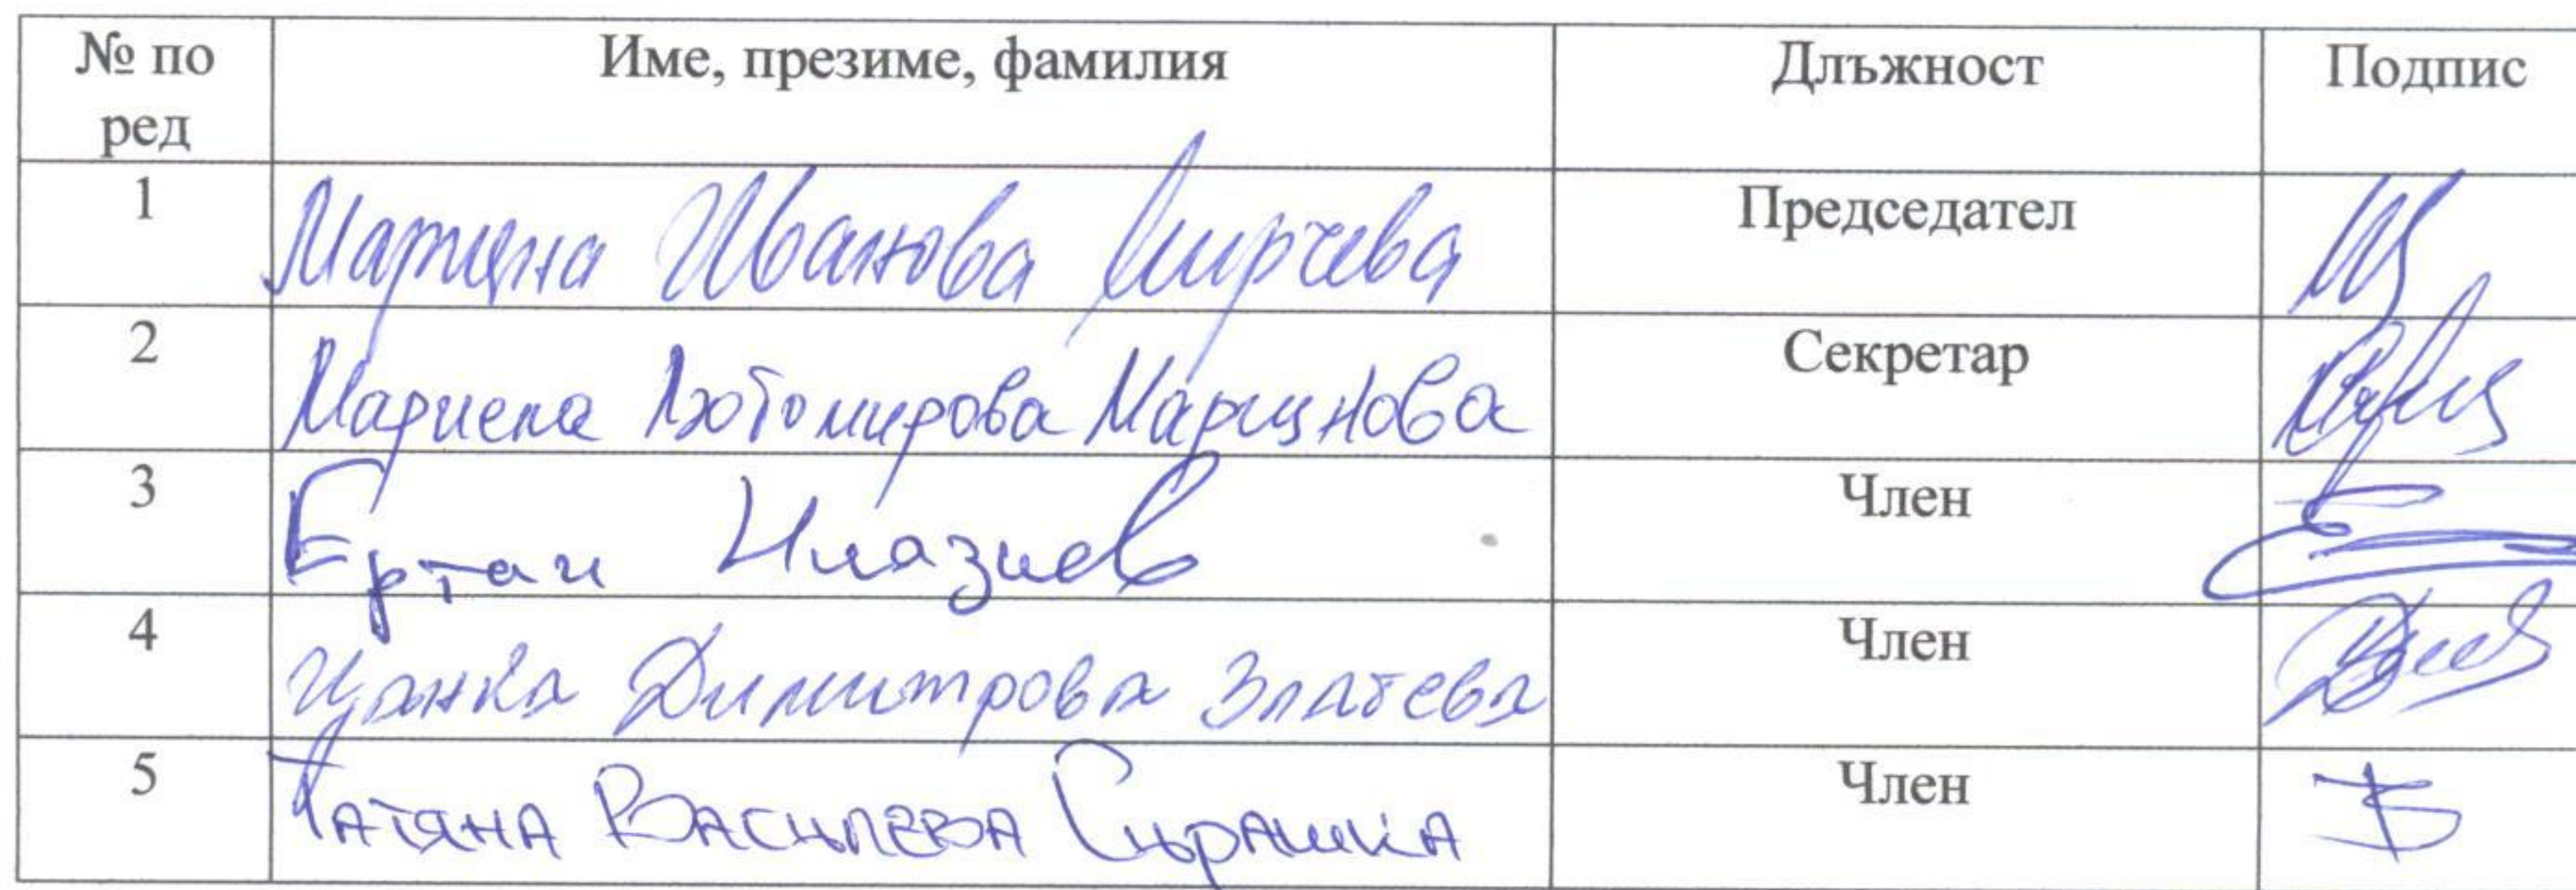 № по ред Име, презиме, фамилия Длъжност Подпис
1 Иванова Председател
2 Мариена Любомирова Маринова Секретар
3 Ертан Ниазиев Член
4 Цанка Димитрова Златева Член
5 Татяна Василева Член